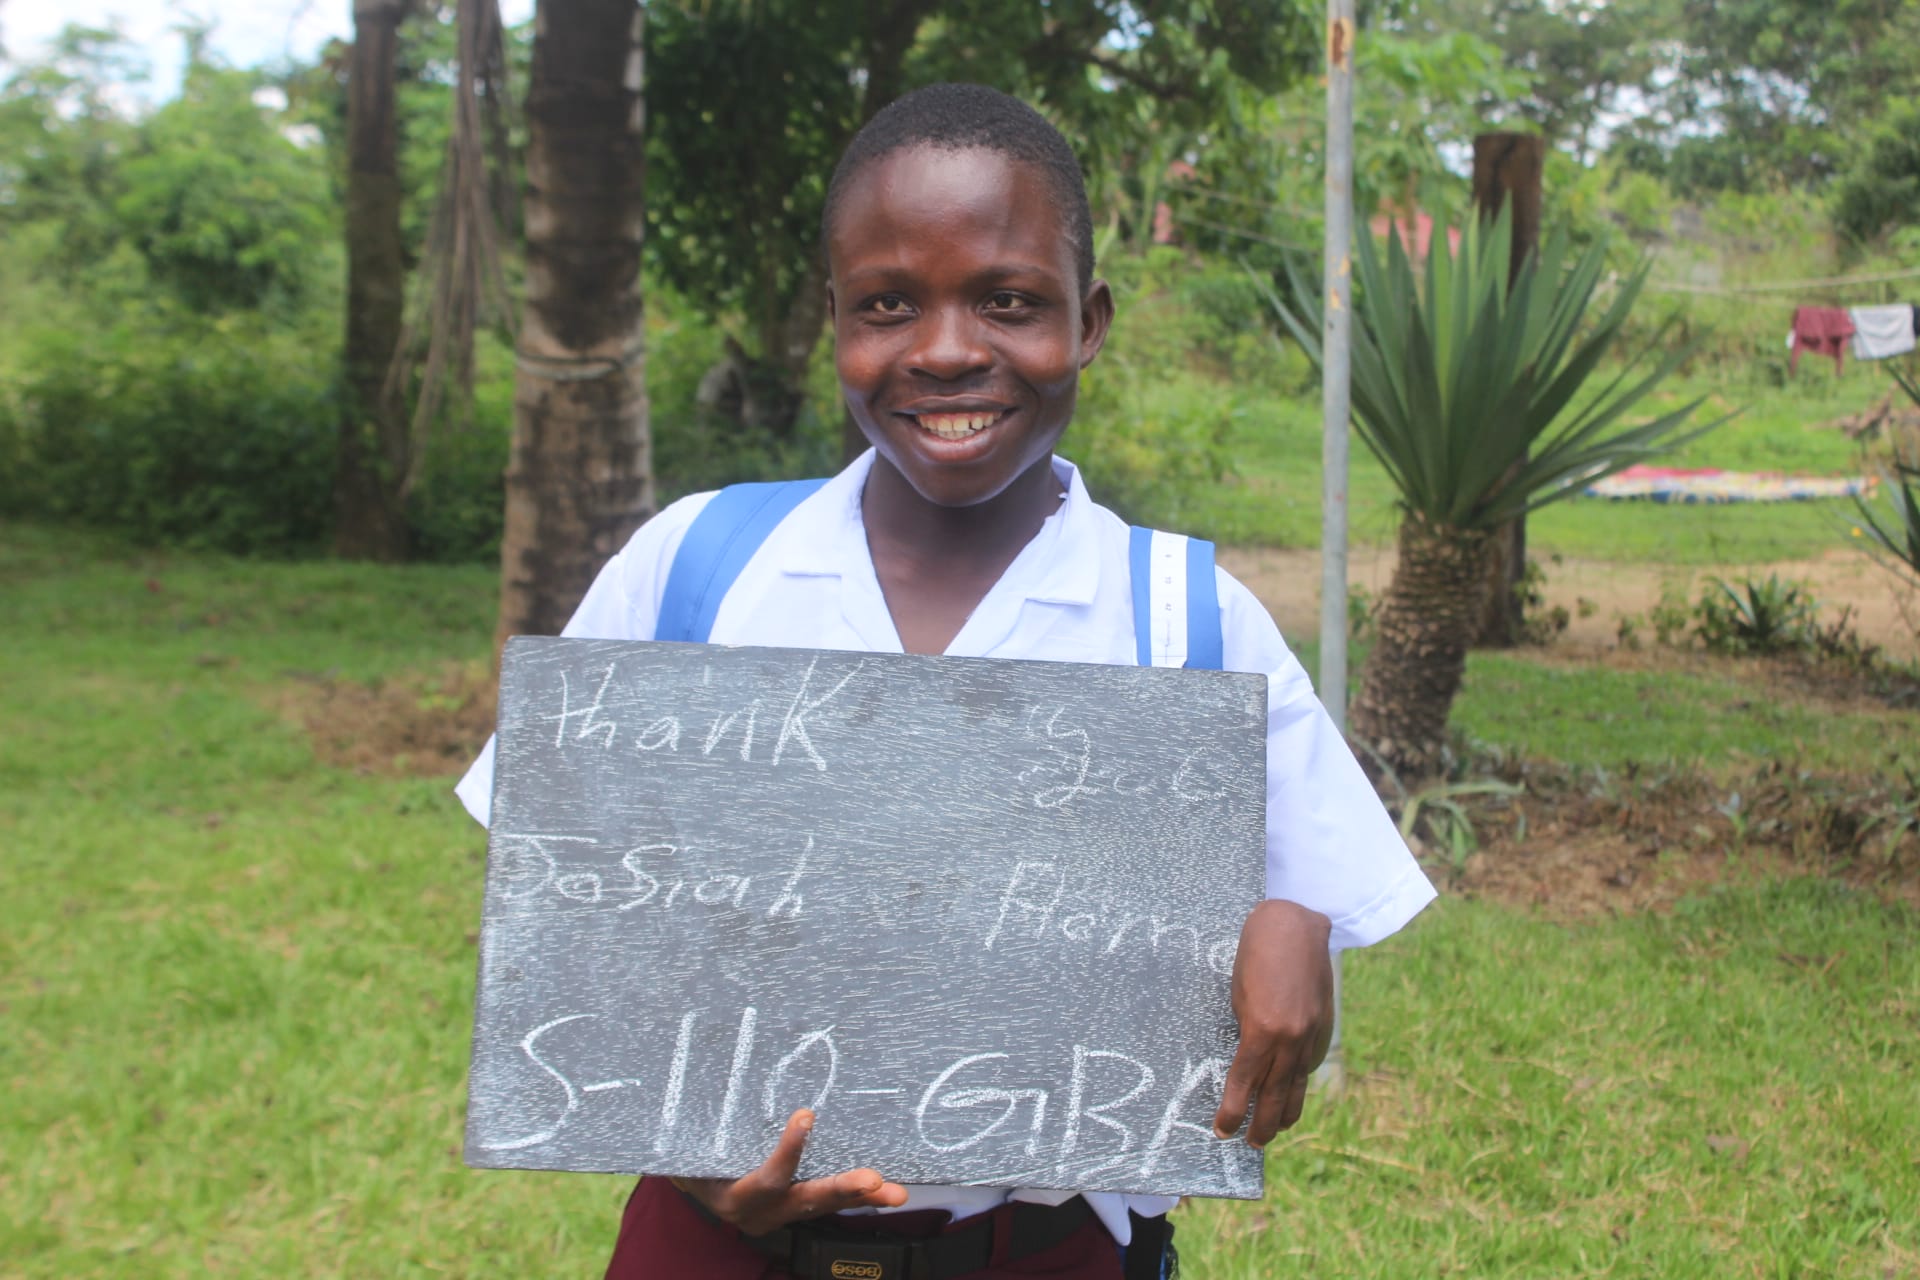 thank you
Josiah Flomo
S-110-GBA
BOSO